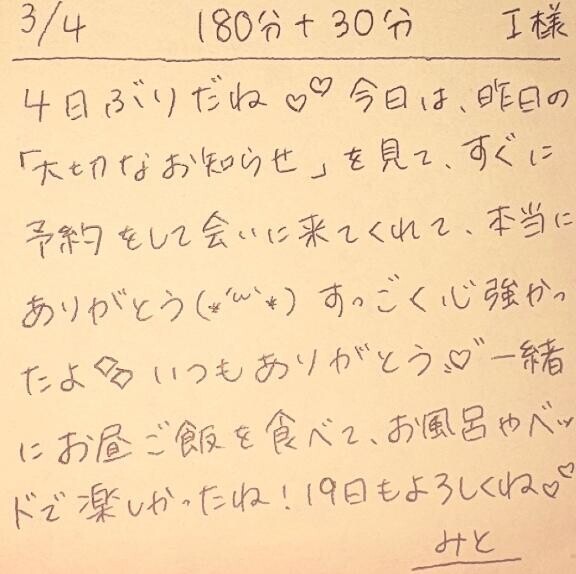 3/4 180分+30分 I様
4日ぶりだね♡♡ 今日は、昨日の
「大切なお知らせ」を見て、すぐに
予約をして会いに来てくれて、本当に
ありがとう(*´ω`*) すっごく心強かっ
たよ◇◇ いつもありがとう♡" 一緒
にお昼ご飯を食べて、お風呂やベッ
ドで楽しかったね!19日もよろしくね♡♡
みと